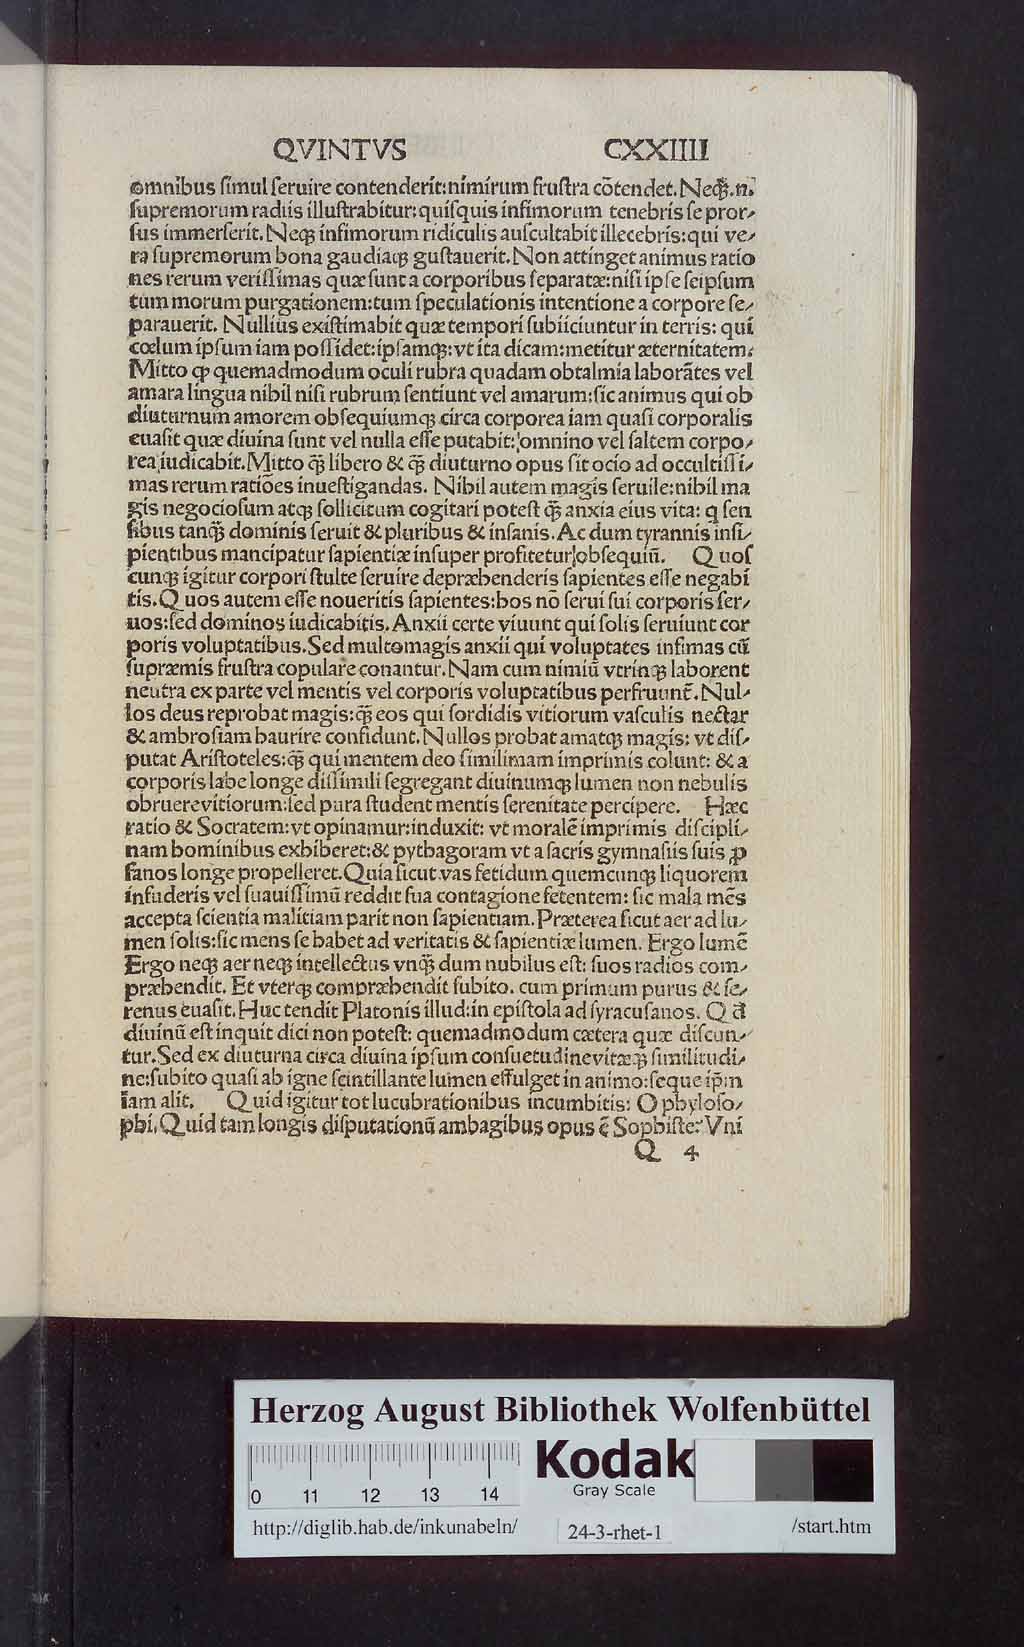 QVINTVS CXXIIII
omnibus simul seruire contenderit:nimirum frustra cõtendet. Neq;.n.
supremorum radiis illustrabitur:quisquis infimorum tenebris se pror-
sus immerserit. Neq; infimorum ridiculis auscultabit illecebris:qui ve-
ra supremorum bona gaudiaq; gustauerit. Non attinget animus ratio
nes rerum verissimas quæ sunt a corporibus separatæ:nisi ipse seipsum
tum morum purgationem:tum speculationis intentione a corpore se-
parauerit. Nullius existimabit quæ tempori subiiciuntur in terris: qui
cœlum ipsum iam possidet:ipsamq;:vt ita dicam:metitur æternitatem:
Mitto ꝙ quemadmodum oculi rubra quadam obtalmia laborãtes vel
amara lingua nihil nisi rubrum sentiunt vel amarum:sic animus qui ob
diuturnum amorem obsequiumq; circa corporea iam quasi corporalis
euasit quæ diuina sunt vel nulla esse putabit: omnino vel saltem corpo-
rea iudicabit. Mitto q̃ libero & q̃ diuturno opus sit ocio ad occultissi-
mas rerum ratiões inuestigandas. Nihil autem magis seruile:nihil ma
gis negociosum atq; sollicitum cogitari potest q̃ anxia eius vita: q sen
sibus tanq̃ dominis seruit & pluribus & insanis. Ac dum tyrannis insi-
pientibus mancipatur sapientiæ insuper profitetur obsequiũ. Quos
cunq; igitur corpori stulte seruire depræhenderis sapientes esse negabi
tis. Quos autem esse noueritis sapientes:hos nõ serui sui corporis ser-
uos:sed dominos iudicabitis. Anxii certe viuunt qui solis seruiunt cor
poris voluptatibus. Sed multomagis anxii qui voluptates infimas cũ
supræmis frustra copulare conantur. Nam cum nimiũ vtrinq; laborent
neutra ex parte vel mentis vel corporis voluptatibus perfruunt̃. Nul-
los deus reprobat magis:q̃ eos qui sordidis vitiorum vasculis nectar
& ambrosiam haurire confidunt. Nullos probat amatq; magis: vt dis-
putat Aristoteles:q̃ qui mentem deo simillimam imprimis colunt: & a
corporis labe longe dissimili segregant diuinumq; lumen non nebulis
obruere vitiorum:sed pura student mentis serenitate percipere. Hæc
ratio & Socratem:vt opinamur:induxit: vt moralẽ imprimis discipli-
nam hominibus exhiberet:& pythagoram vt a sacris gymnasiis suis ꝓ
fanos longe propelleret. Quia sicut vas fetidum quemcunq; liquorem
infuderis vel suauissimũ reddit sua contagione fetentem: sic mala mẽs
accepta scientia malitiam parit non sapientiam. Præterea sicut aer ad lu-
men solis:sic mens se habet ad veritatis & sapientiæ lumen. Ergo lumẽ
Ergo neq; aer neq; intellectus vnq̃ dum nubilus est: suos radios com-
præhendit. Et vterq; compræhendit subito. cum primum purus & se-
renus euasit. Huc tendit Platonis illud:in epistola ad syracusanos. Qđ
diuinũ est inquit dici non potest: quemadmodum cætera quæ discun-
tur. Sed ex diuturna circa diuina ipsum consuetudine vitæq; similitudi-
ne:subito quasi ab igne scintillante lumen effulget in animo:seque ip̃m
iam alit. Quid igitur tot lucubrationibus incumbitis: O phyloso-
phi. Quid tam longis disputationũ ambagibus opus ẽ Sophiste? Vni
Q 4
Herzog August Bibliothek Wolfenbüttel
Kodak
Gray Scale
0 11 12 13 14
http://diglib.hab.de/inkunabeln/ 24-3-rhet-1 /start.htm